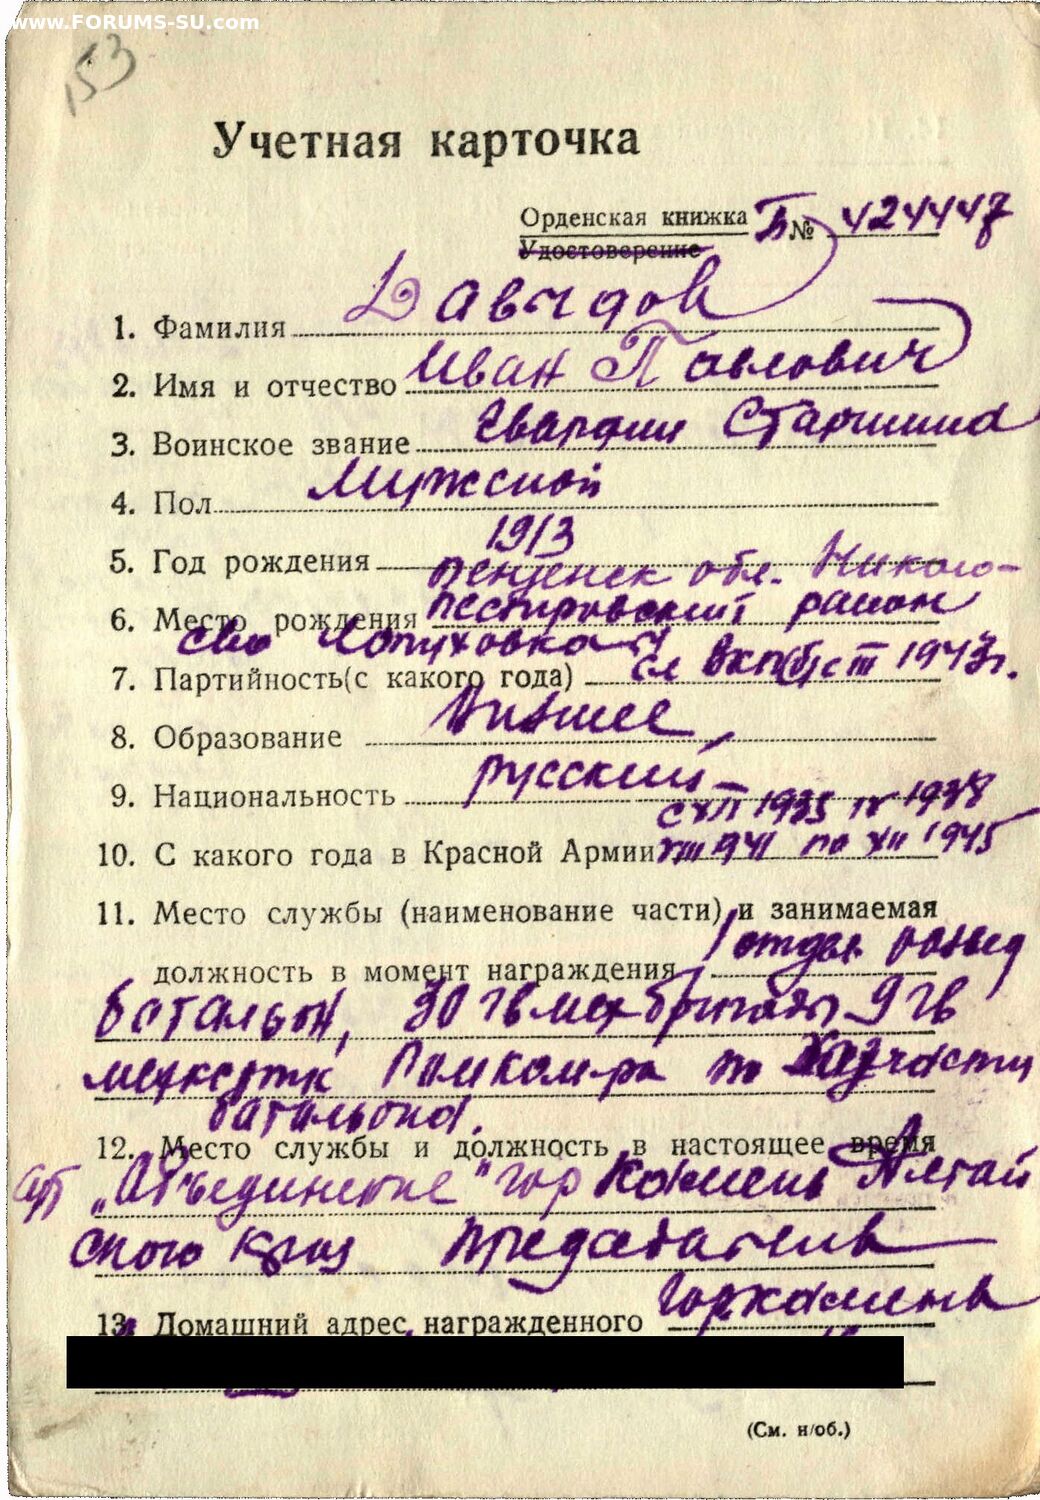 www.FORUMS-SU.com
153
Учетная карточка
Орденская книжка Б № 424447
Удостоверение
1. Фамилия Давыдов
2. Имя и отчество Иван Павлович
3. Воинское звание Гвардии Старшина
4. Пол Мужской
5. Год рождения 1913
Пензенск обл. Николо-
6. Место рождения пестровский район
село Лопуховка
7. Партийность (с какого года) чл ВКП(б) с III 1943г.
8. Образование Низшее
9. Национальность русский
с XII 1935 IV 1938
10. С какого года в Красной Армии VIII 1941 по XII 1945
11. Место службы (наименование части) и занимаемая
должность в момент награждения отдел. развед
батальон, 30 гв мех бригады 9 гв
мехкорпус Помком-ра по хозчасти
батальона.
12. Место службы и должность в настоящее время
"Объединение" гор Камень Алтай
ского края председатель
13. Домашний адрес награжденного Гор Камень
(См. н/об.)